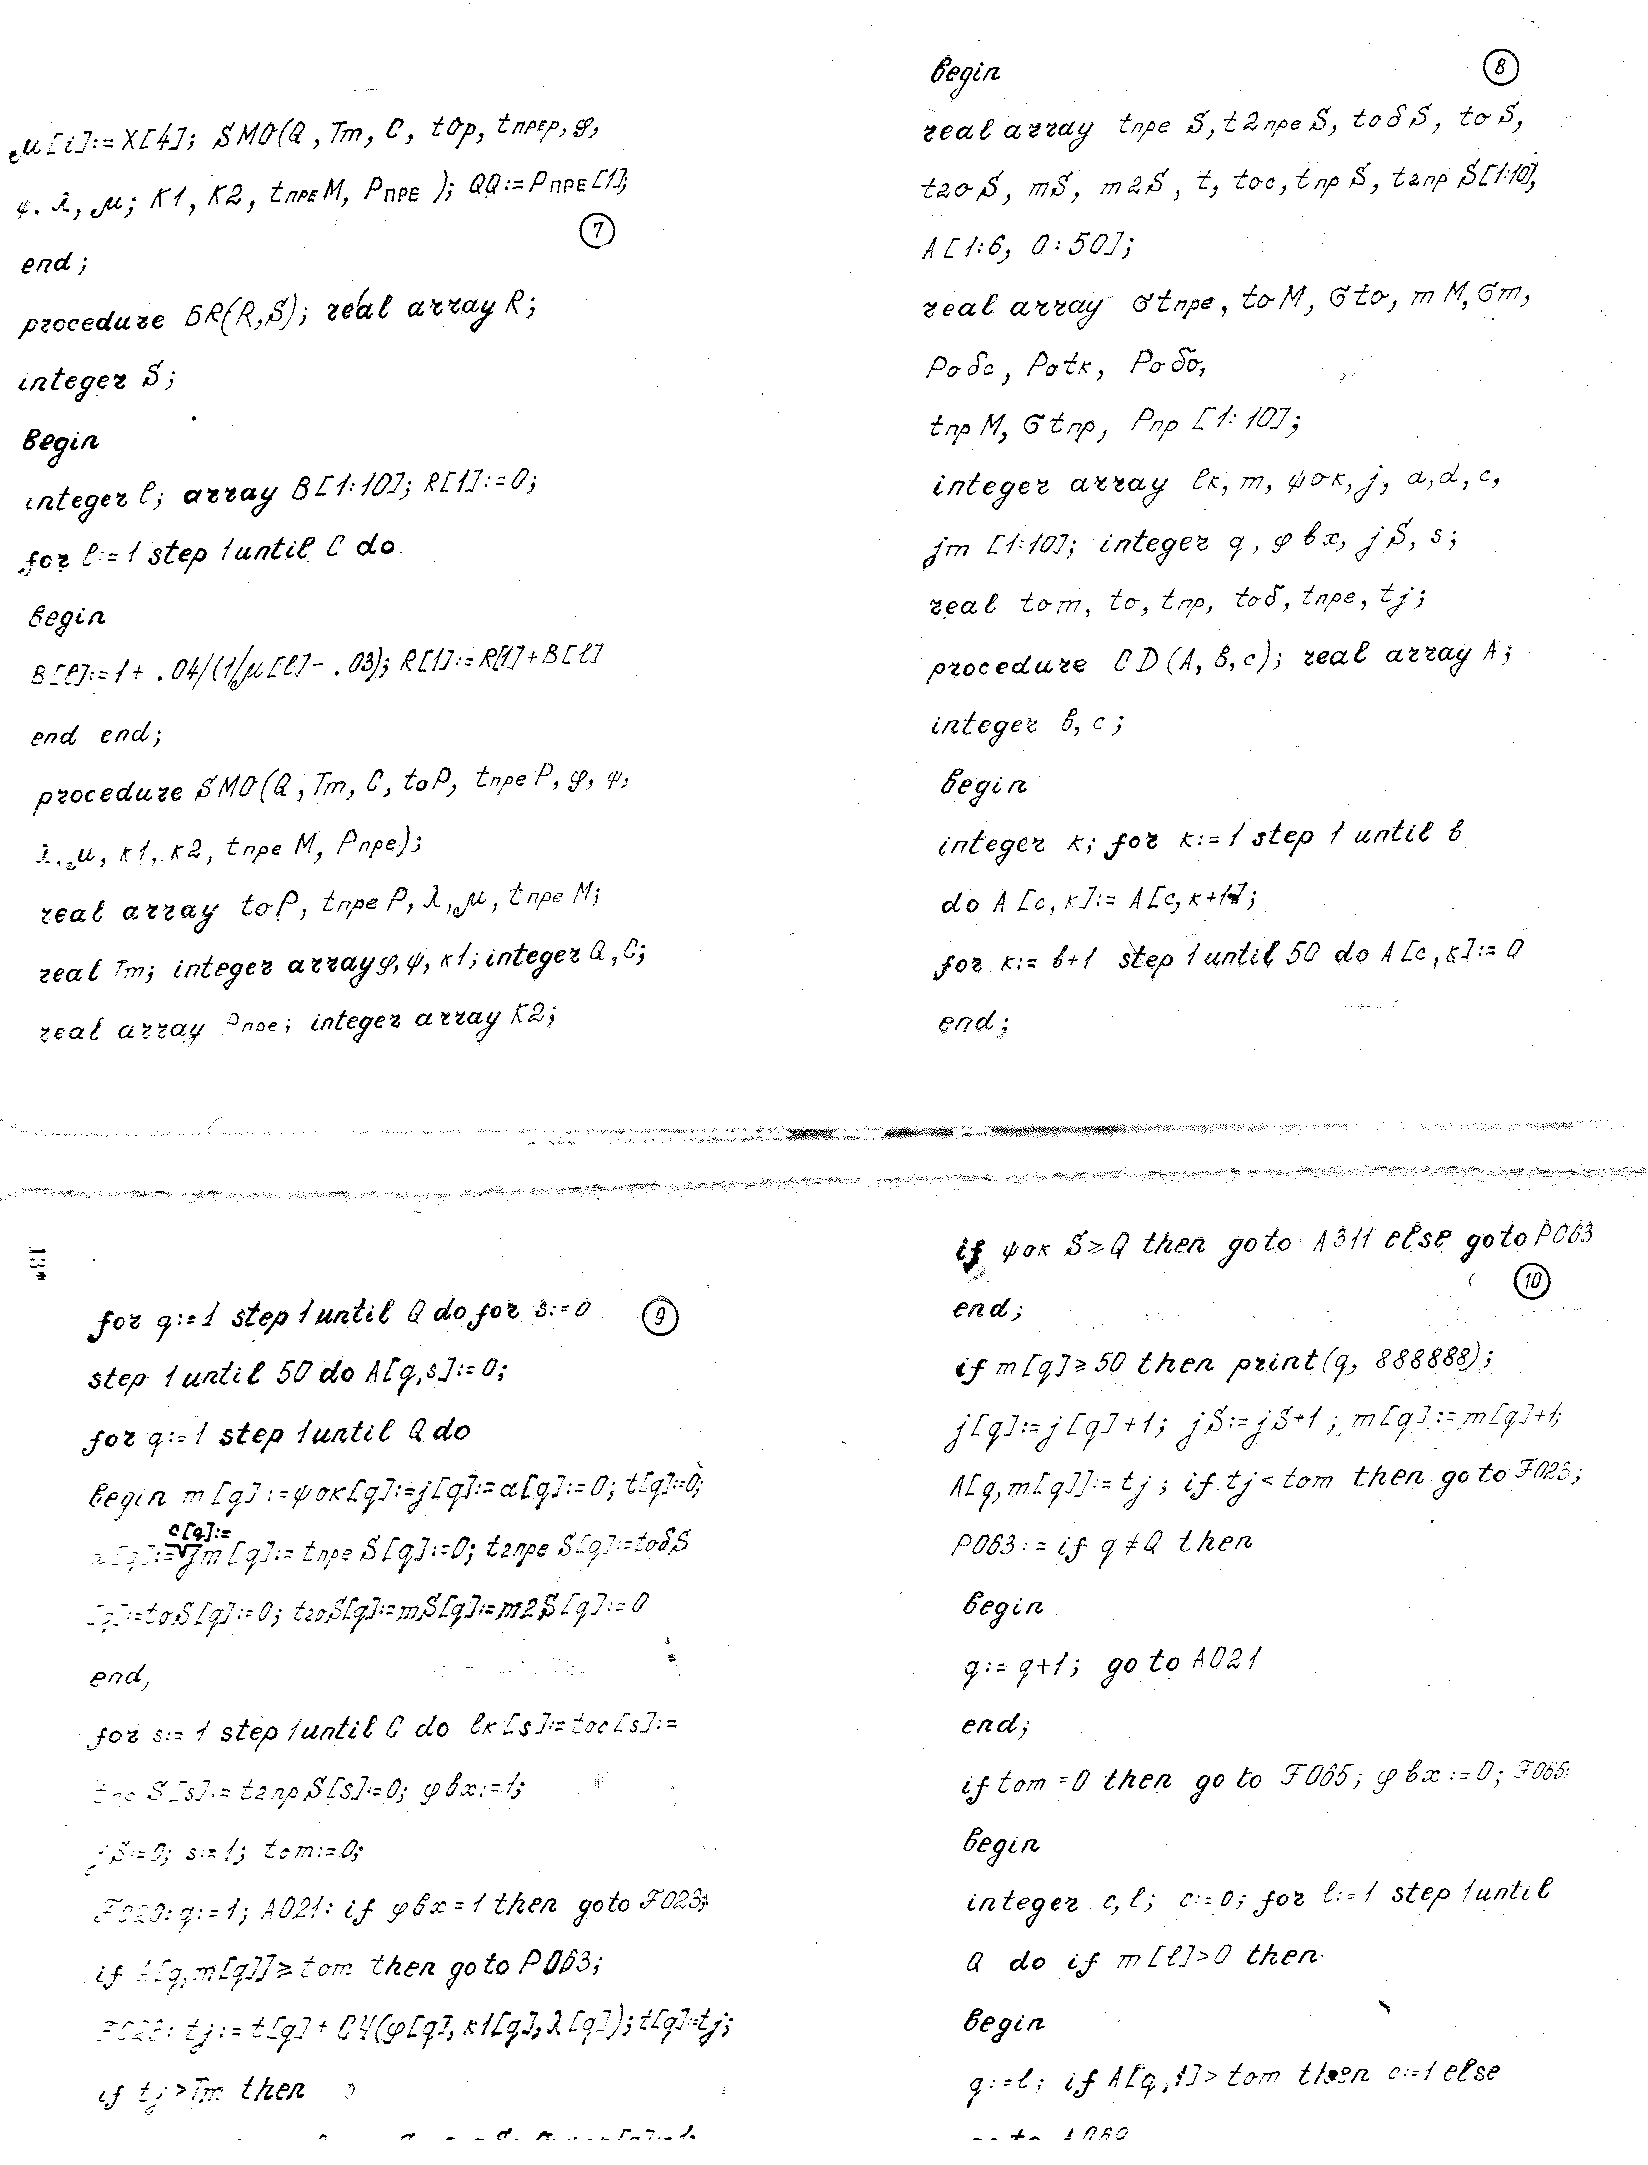 μ[i]:=X[4]; SMO(Q, Tm, C, tOp, tпрер, φ,
ψ. λ, μ; K1, K2, tпреM, Pпре ); QQ:=Pпре[1];
7
end;
procedure БR(R,S); real array R;
integer S;
begin
integer l; array B[1:10]; R[1]:=0;
for l:=1 step 1 until C do
begin
B[l]:=1+ .04/(1/μ[l]- .03); R[1]:=R[1]+B[l]
end end;
procedure SMO(Q, Tm, C, toP, tпреP, φ, ψ,
λ, μ, к1, к2, tпре M, Pпре);
real array toP, tпре P, λ, μ, tпре M;
real Tm; integer array φ, ψ, к1; integer Q, C;
real array Pпре; integer array K2;
begin
8
real array tпре S, t2пре S, toб S, to S,
t2o S, mS, m2S, t, toc, tпр S, t2пр S[1:10],
A[1:6, 0:50];
real array σtпре, toM, σto, mM, σm,
Poбc, Potк, Poбo,
tпр M, σtпр, Pпр [1:10];
integer array lк, m, ψoк, j, a, d, c,
jm [1:10]; integer q, φвx, jS, s;
real tom, to, tпр, toб, tпре, tj;
procedure CD(A, в, c); real array A;
integer в, c;
begin
integer к; for к:=1 step 1 until в
do A[c,к]:= A[c,к+1];
for к:= в+1 step 1 until 50 do A[c,к]:= 0
end;
for q:=1 step 1 until Q do for s:=0
9
step 1 until 50 do A[q,s]:=0;
for q:=1 step 1 until Q do
begin m[q]:=ψoк[q]:=j[q]:=a[q]:=0; t[q]:=0;
c[q]:=
jm[q]:= tпре S[q]:=0; t2пре S[q]:=toбS
[q]:=toS[q]:=0; t2oS[q]:=mS[q]:=m2S[q]:=0
end,
for s:= 1 step 1 until C do lк[s]:=toc[s]:=
S[s]:= t2пр S[s]:=0; φвx:=1;
jS:=0; s:=1; tom:=0;
F020: q:=1; A021: if φвx=1 then go to F023;
if A[q,m[q]]≥tom then go to P063;
F023: tj:= t[q]+ СЧ(φ[q], к1[q], λ[q]); t[q]:=tj;
if tj>Tm then
if ψoк S≥Q then go to A311 else go to P063
10
end;
if m[q]≥50 then print(q, 888888);
j[q]:=j[q]+1; jS:=jS+1; m[q]:=m[q]+1;
A[q,m[q]]:=tj; if tj<tom then go to F023;
P063:= if q≠Q then
begin
q:= q+1; go to A021
end;
if tom =0 then go to F065; φвx:=0; F065:
begin
integer c, l; c:=0; for l:=1 step 1 until
Q do if m[l]>0 then
begin
q:=l; if A[q,1]> tom then c:=1 else